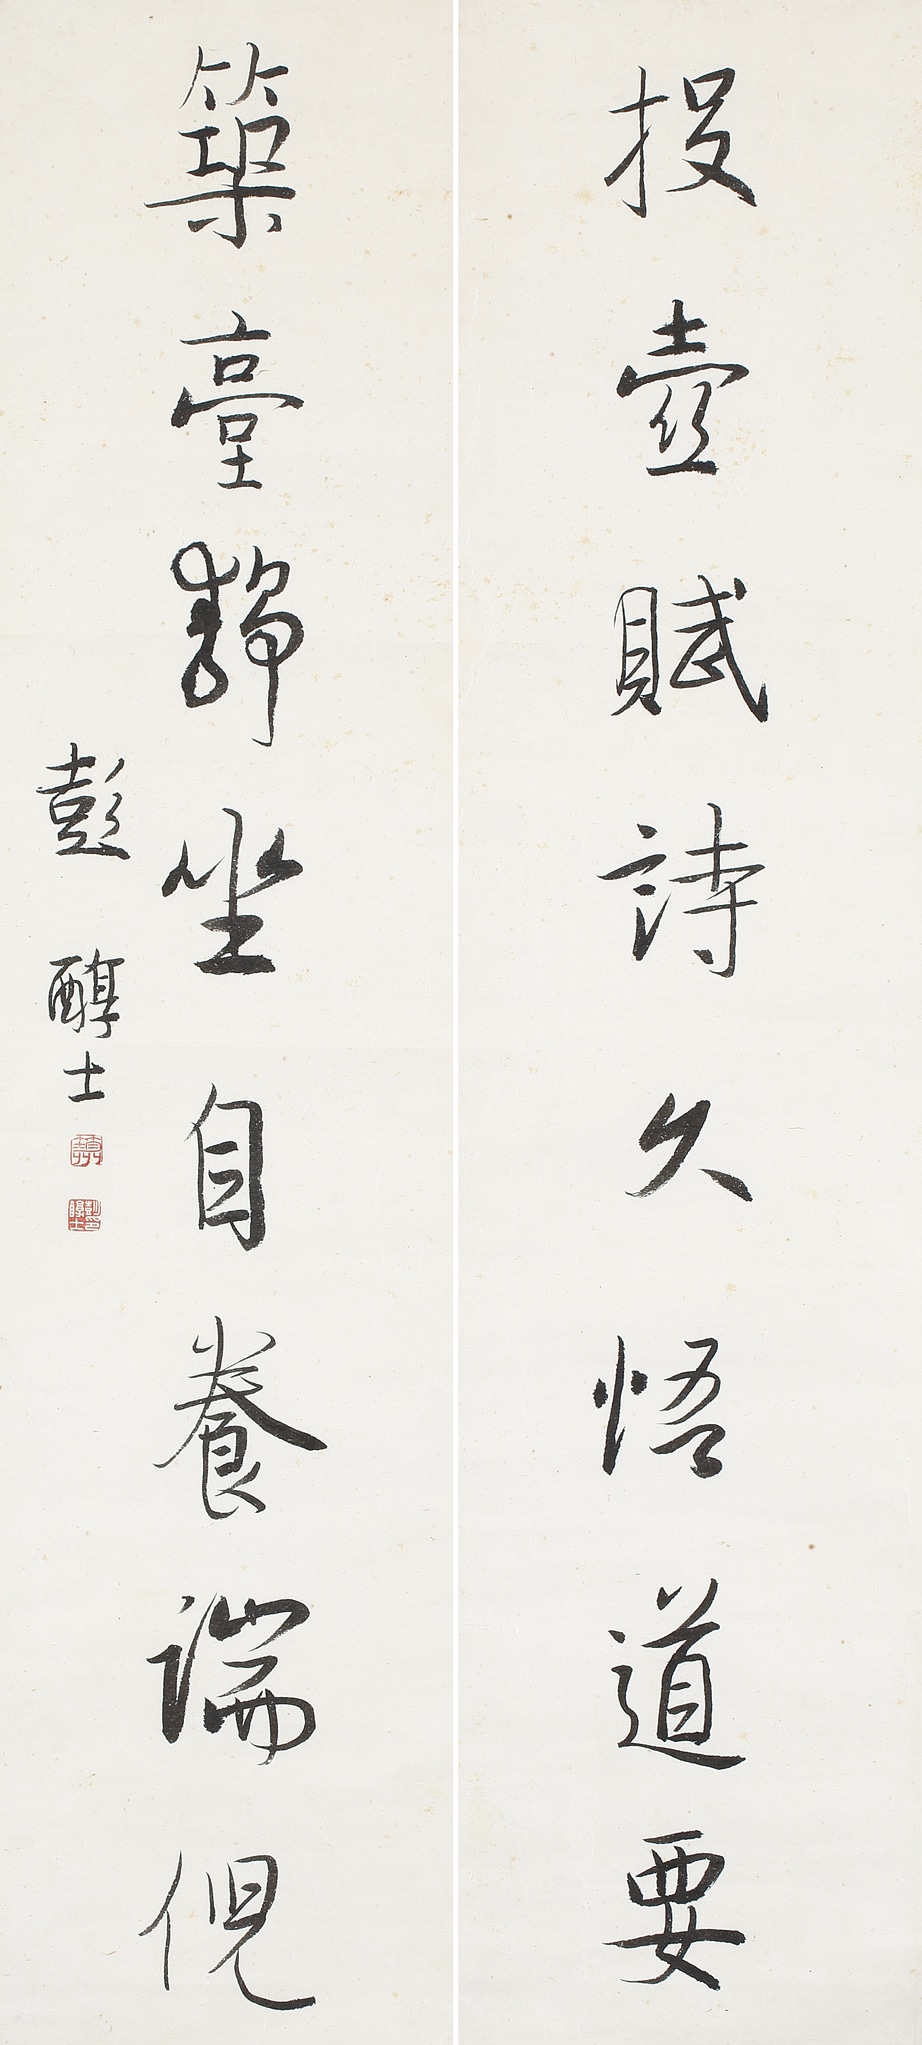 投壺賦詩久悟道要
築臺靜坐自養端倪
彭醇士